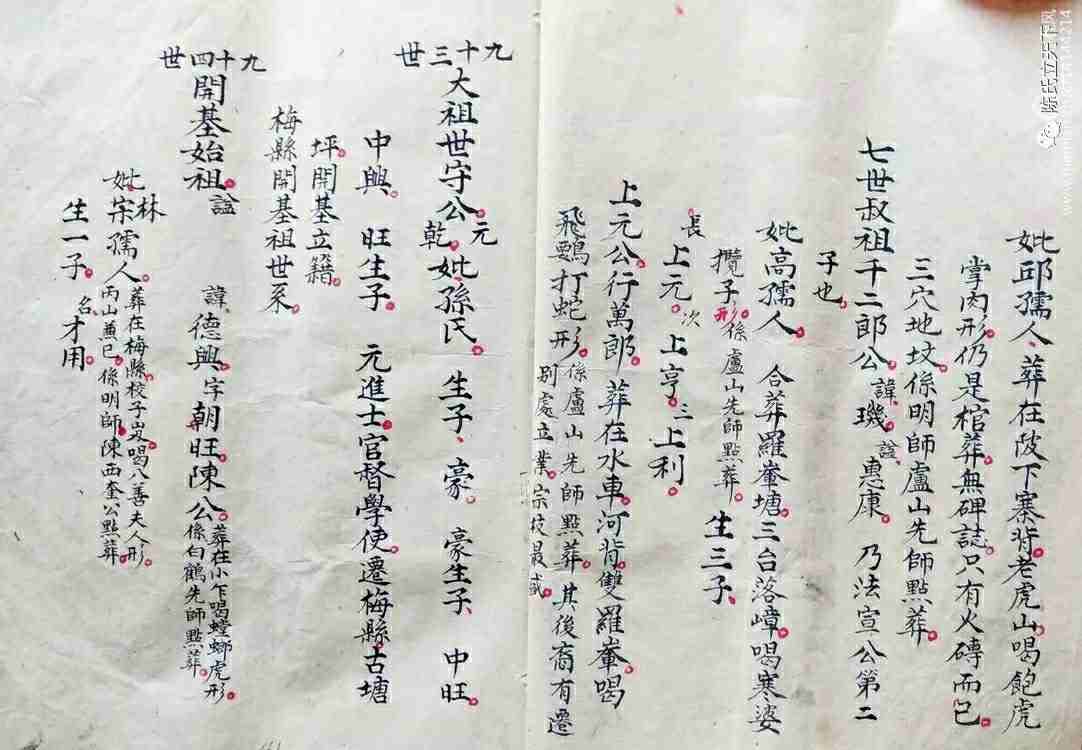 妣邱孺人葬在陂下寨背老虎山喝飽虎
掌肉形仍是棺葬無碑誌只有火磚而已
三穴地坟係明師盧山先師點葬
七世叔祖千二郎公諱璣諡惠康 乃法宣公第二
子也
妣高孺人 合葬羅輋塘三台落嶂喝寒婆
攬子形係盧山先師點葬 生三子
長上元次上亨三上利
上元公行萬郎葬在水車河背雙羅輋喝
飛鷃打蛇形係盧山先師點葬其後裔有遷
別處立業宗枝最盛
九十三世
大祖世守公元乾妣孫氏 生子豪 豪生子 中旺
中興 旺生子 元進士官督學使遷梅縣古塘
坪開基立籍
梅縣開基祖世系
九十四世
開基始祖諡
諱德興字朝旺陳公葬在小乍喝螳螂虎形
係白鶴先師點葬
妣林宋孺人葬在梅縣校子喝八善夫人形
丙山兼巳係明師陳西奎公點葬
生一子名才用
陈氏立沂下风